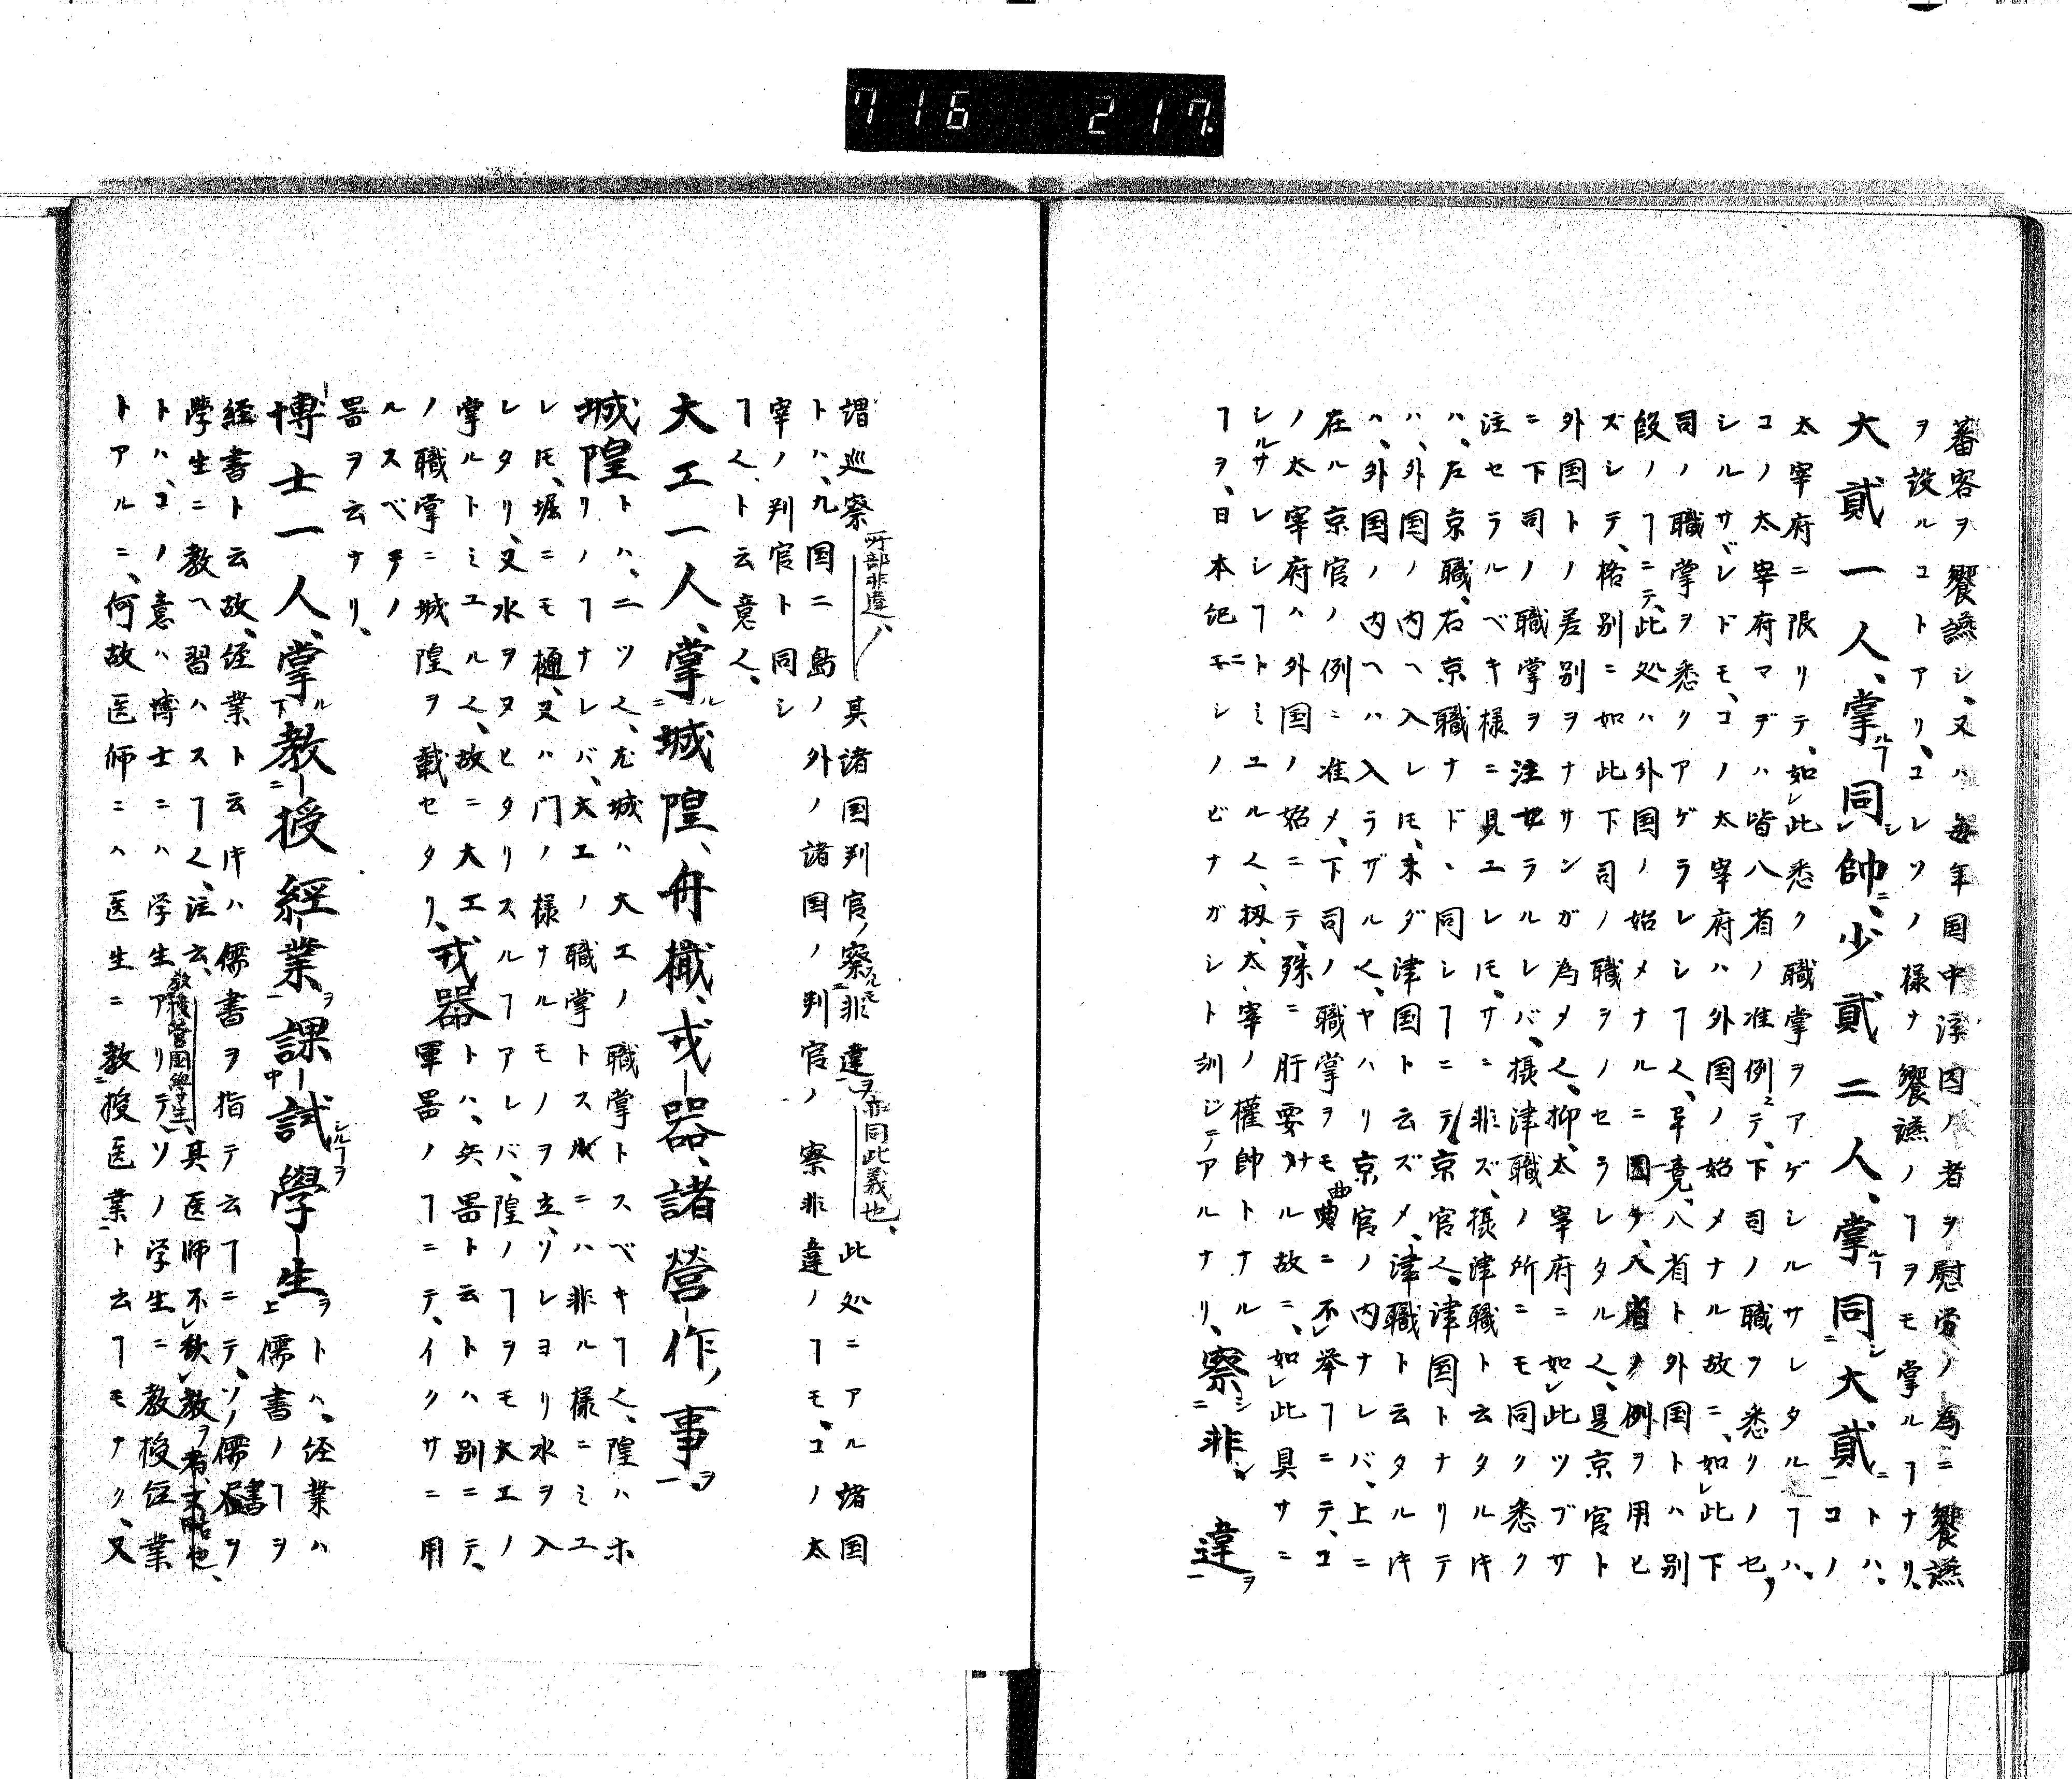 716 217.
蕃客ヲ饗讌シ、又ハ毎年国中深因ノ者ヲ慰労ノ為ニ饗讌
ヲ設ルコトアリ、コレソノ様ナ饗讌ノヿヲモ掌ルヿナリ、
大貳一人、掌ルヿ同シ帥ニ、少貳二人、掌ルヿ同シ大貳ニトハ、コノ
太宰府ニ限リテ、如レ此悉ク職掌ヲアゲシルサレタルヿハ、
コノ太宰府マデハ皆八省ノ准例ニテ、下司ノ職ヲ悉クノセ、
シルサレドモ、コノ太宰府ハ外国ノ始メナル故ニ、如レ此下
司ノ職掌ヲ悉クアゲラレシヿ也、畢竟、八省ト外国トハ別
段ノヿニテ、此処ハ外国ノ始メナルニ因テ、八省ノ例ヲ用ヒ
ズシテ、格別ニ如此下司ノ職ヲノセラレタル也、是京官ト
外国トノ差別ヲナサンガ為メ也、抑、太宰府ニ如レ此ツブサ
ニ下司ノ職掌ヲ注セラルレバ、摂津職ノ所ニモ同ク悉ク
注セラルベキ様ニ見ユレ𪜈、サニ非ズ、摂津職ト云タルキ
ハ、左京職、右京職ナド、同シヿニテ京官也、津国トナリテ
ハ、外国ノ内ヘ入レ𪜈、未ダ津国ト云ズメ、津職ト云タルキ
ハ、外国ノ内ヘハ入ラザル也、ヤハリ京官ノ内ナレバ、上ニ
在ル京官ノ例ニ准メ、下司ノ職掌ヲモ曲ニ不レ挙ヿニテ、コ
ノ太宰府ハ外国ノ始ニテ、殊ニ肝要ナル故ニ、如レ此具サニ
シルサレシヿトミユル也、扨、太宰ノ權帥トナル
ヿヲ、日本紀ニモシノビナガシト訓ジテアルナリ、察シ非違ヲ
謂巡察所部非違、其諸国判官ノ察ルモ非違ヲ亦同此義也、此処ニアル諸国
トハ、九国二島ノ外ノ諸国ノ判官ノ察非違ノヿモ、コノ太
宰ノ判官ト同シ
ヿ也、ト云意也、
大工一人、掌ル城隍、舟檝、戎器、諸營作ノ事ヲ
城隍トハ、二ツ也、尤城ハ大工ノ職掌トスベキヿ也、隍ハホ
リノヿナレバ、大工ノ職掌トスルニハ非ル様ニミユ
レ𪜈、堀ニモ樋、又ハ門ノ様サルモノヲ立、ソレヨリ水ヲ入
レタリ、又水ヲヌヒタリスルヿアレバ、隍ノヿヲモ大工ノ
掌ルトミユル也、故ニ大工
ノ職掌ニ城隍ヲ載セタリ、戎器トハ、兵器ト云トハ別ニテ、
軍器ノヿニテ、イクサニ用
ルスベテノ
器ヲ云ナリ、
博士一人、掌ル教授經業ヲ課試シルヿヲ學生ヲトハ、経業ハ
儒書ノヿヲ
経書ト云故、経業ト云𪜈ハ儒書ヲ指テ云ヿニテ、ソノ儒書ヲ
學生ニ教ヘ習ハスヿ也、注云、教授管国學生、其医師不レ教レ教ヲ者、文略也、
トハ、コノ意ハ博士ニハ学生アリテソノ学生ニ教授経業
トアルニ、何故医師ニハ医生ニ教授医業ト云ヿモナク、又